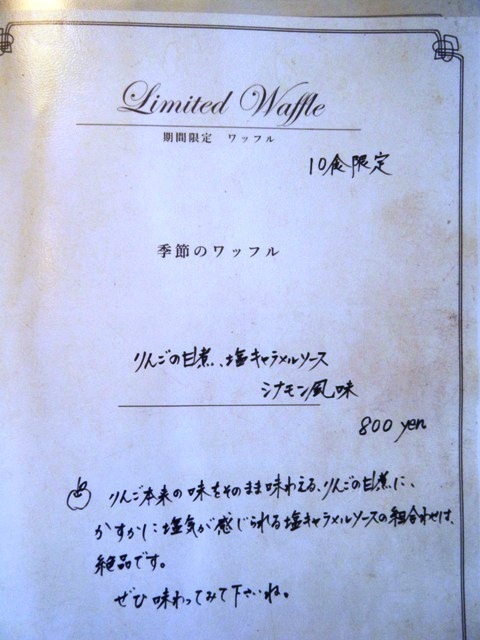 Limited Waffle
期間限定 ワッフル
10食限定
季節のワッフル
りんごの甘煮、塩キャラメルソース
シナモン風味
800 yen
りんご本来の味をそのまま味わえる、りんごの甘煮に、
かすかに塩気が感じられる塩キャラメルソースの組合わせは、
絶品です。
ぜひ味わってみて下さいね。